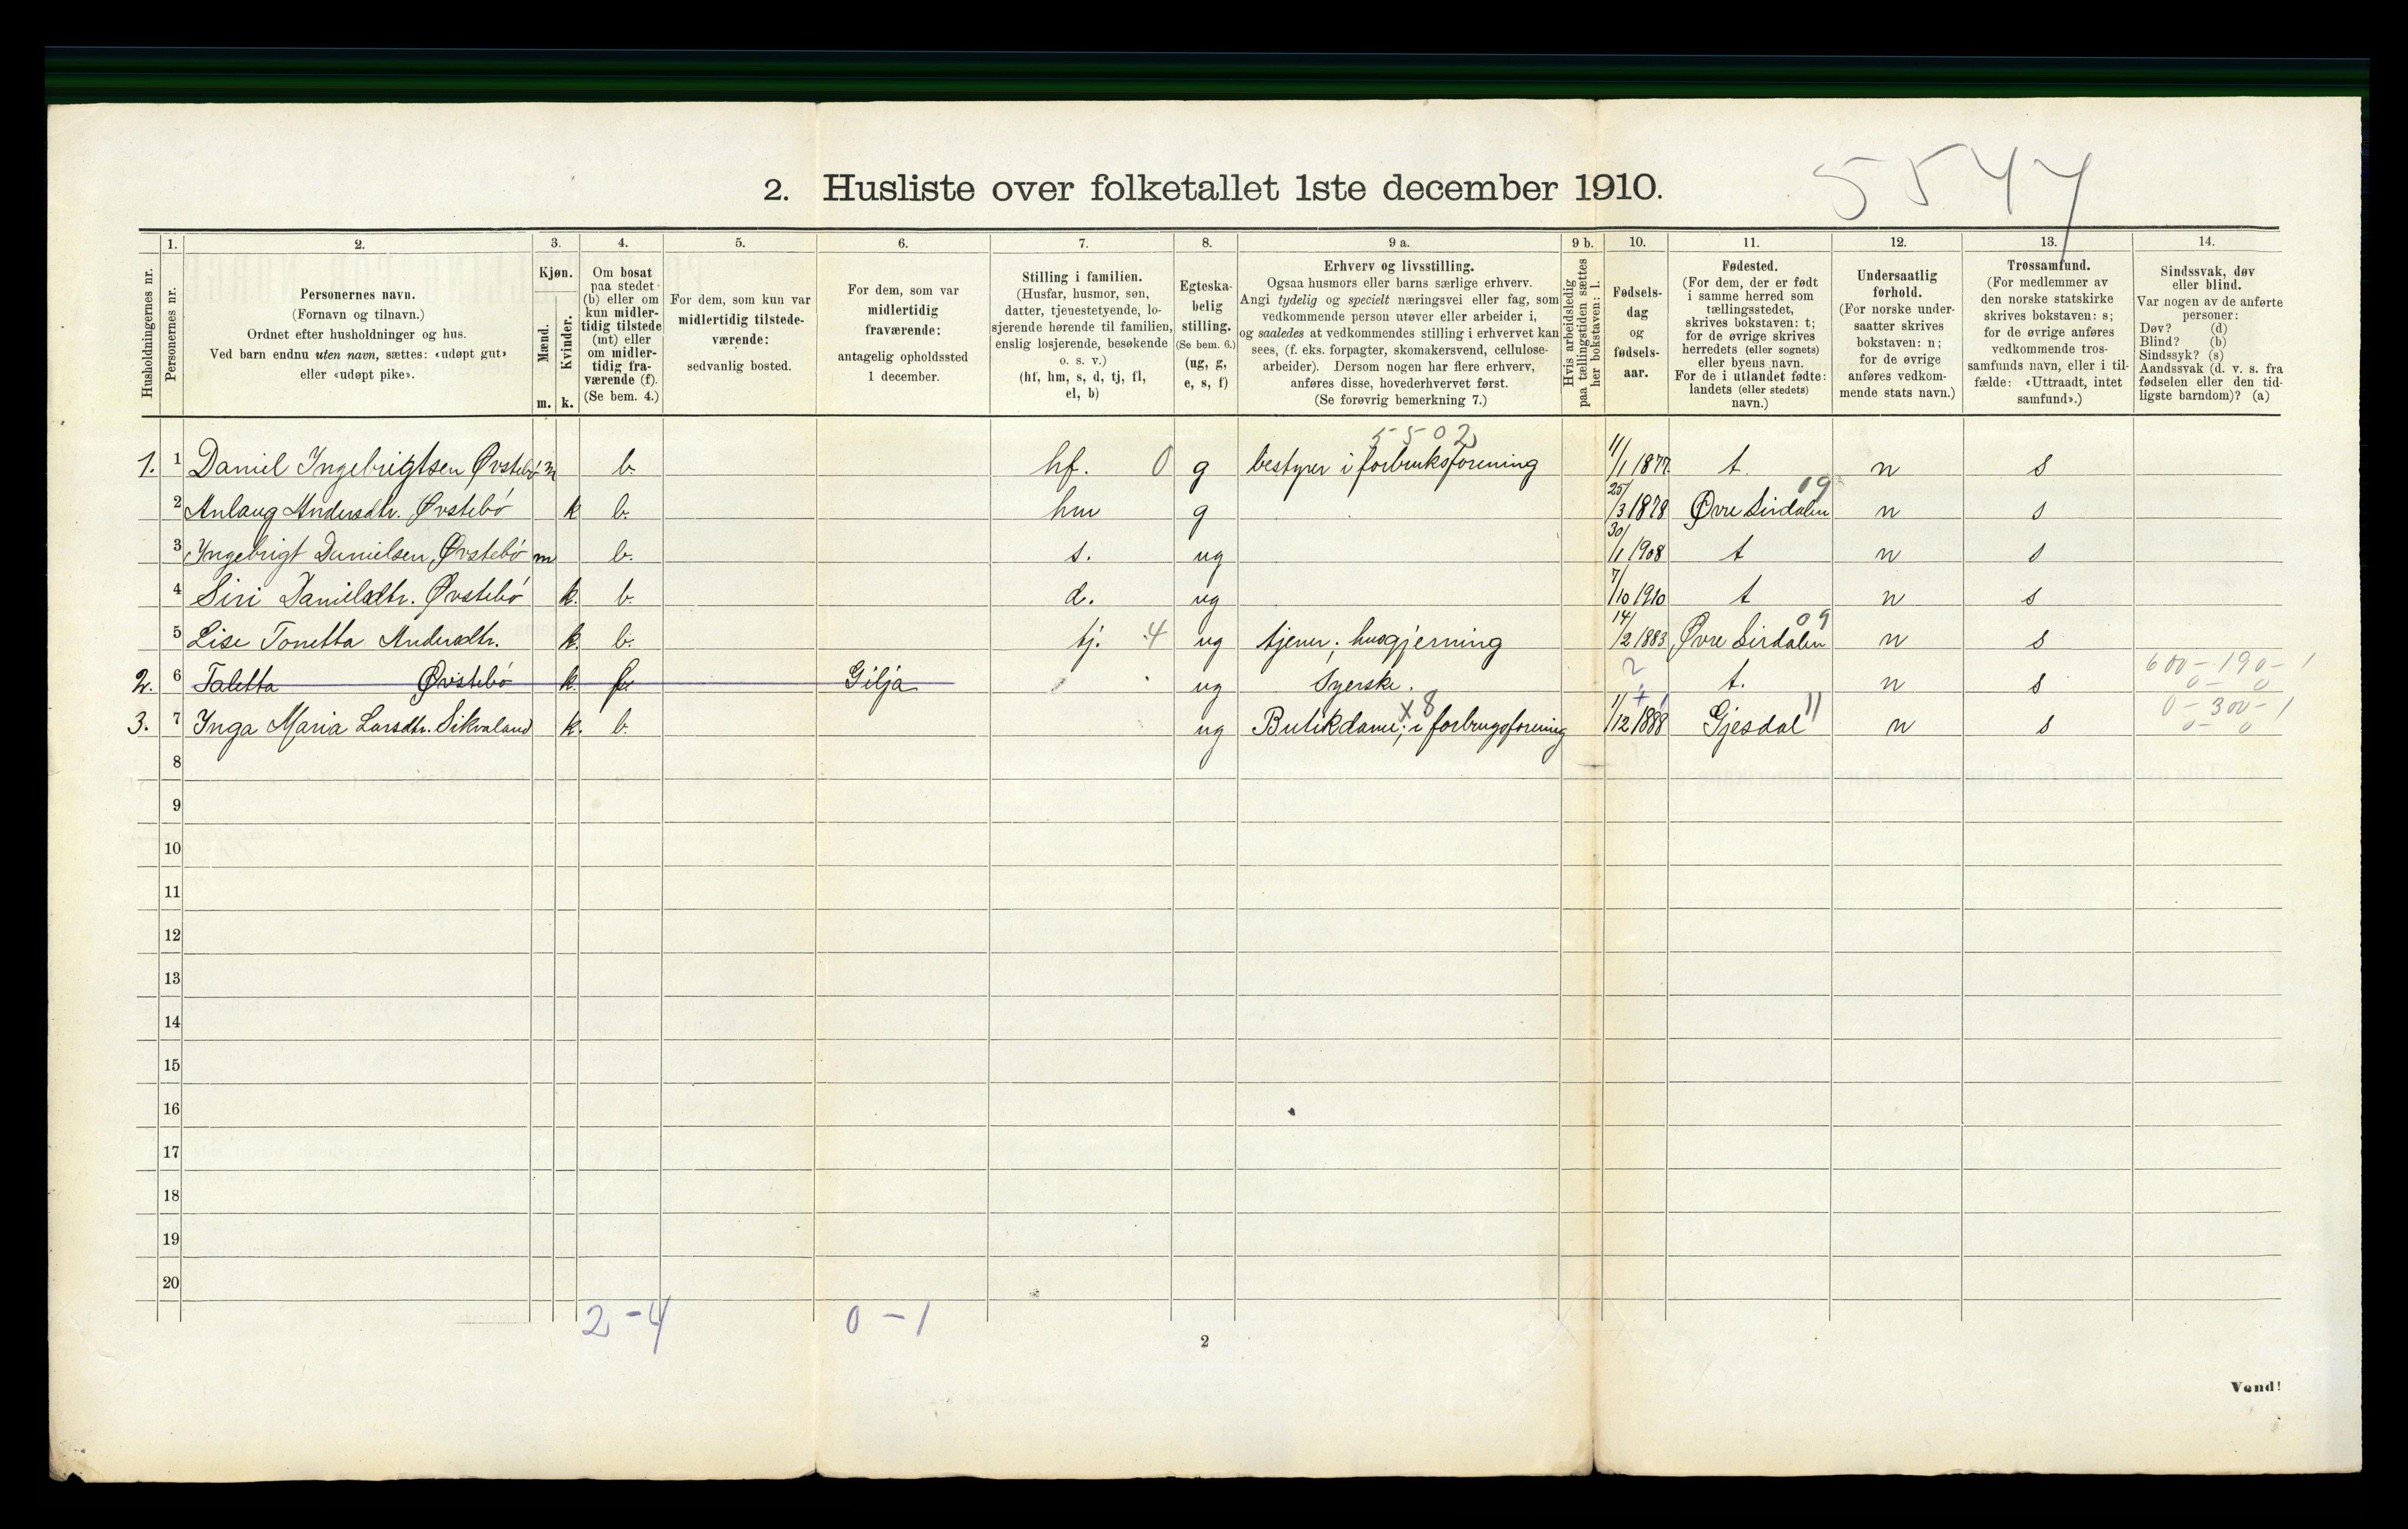 2. Husliste over folketallet 1ste december 1910.
5544
Husholdningernes nr.
1.
Personernes nr.
2.
Personernes navn.
(Fornavn og tilnavn.)
Ordnet efter husholdninger og hus.
Ved barn endnu uten navn, sættes: «udøpt gut»
eller «udøpt pike».
3.
Kjøn.
Mænd.
Kvinder.
m. k.
4.
Om bosat
paa stedet
(b) eller om
kun midler-
tidig tilstede
(mt) eller
om midler-
tidig fra-
værende (f).
(Se bem. 4.)
5.
For dem, som kun var
midlertidig tilstede-
værende:
sedvanlig bosted.
6.
For dem, som var
midlertidig
fraværende:
antagelig opholdssted
1 december.
7.
Stilling i familien.
(Husfar, husmor, søn,
datter, tjenestetyende, lo-
sjerende hørende til familien,
enslig losjerende, besøkende
o. s. v.)
(hf, hm, s, d, tj, fl,
el, b)
8.
Egteska-
belig
stilling.
(Se bem. 6.)
(ug, g,
e, s, f)
9 a.
Erhverv og livsstilling.
Ogsaa husmors eller barns særlige erhverv.
Angi tydelig og specielt næringsvei eller fag, som
vedkommende person utøver eller arbeider i,
og saaledes at vedkommendes stilling i erhvervet kan
sees, (f. eks. forpagter, skomakersvend, cellulose-
arbeider). Dersom nogen har flere erhverv,
anføres disse, hovederhvervet først.
(Se forøvrig bemerkning 7.)
9 b.
Hvis arbeidsledig
paa tællingstiden sættes
her bokstaven: l.
10.
Fødsels-
dag
og
fødsels-
aar.
11.
Fødested.
(For dem, der er født
i samme herred som
tællingsstedet,
skrives bokstaven: t;
for de øvrige skrives
herredets (eller sognets)
eller byens navn.
For de i utlandet fødte:
landets (eller stedets)
navn.)
12.
Undersaatlig
forhold.
(For norske under-
saatter skrives
bokstaven: n;
for de øvrige
anføres vedkom-
mende stats navn.)
13.
Trossamfund.
(For medlemmer av
den norske statskirke
skrives bokstaven: s;
for de øvrige anføres
vedkommende tros-
samfunds navn, eller i til-
fælde: «Uttraadt, intet
samfund».)
14.
Sindssvak, døv
eller blind.
Var nogen av de anførte
personer:
Døv? (d)
Blind? (b)
Sindssyk? (s)
Aandssvak (d. v. s. fra
fødselen eller den tid-
ligste barndom)? (a)
5502
1. 1 Daniel Ingebrigtsen Øvstebö m b. hf. 0 g bestyrer i forbruksforening 11/1 1877 t. n s
2 Anlaug Andersdtr. Øvstebö k b. hm g 25/3 1878 Øvre Sirdalen 09 n s
3 Ingebrigt Danielsen Øvstebö m b. s. ug 30/1 1908 t n s
4 Siri Danielsdtr. Øvstebö k. b. d. ug 7/10 1910 t n s
5 Lise Tonetta Andersdtr. k. b. tj. 4 ug tjener; husgjerning 14/2 1883 Øvre Sirdalen 09 n s
2. 6 Taletta Øvstebö k. f. Gilja ug Syerske. ? t. n s 600-190-1
0-0
3. 7 Inga Maria Larsdtr. Sikvaland k. b. ug Butikdame; i forbrugsforening x8 1/12 1888 Gjesdal 11 n s 0-300-1
0-0
8
9
10
11
12
13
14
15
16
17
18
19
20
2-4 0-1
2
Vend!